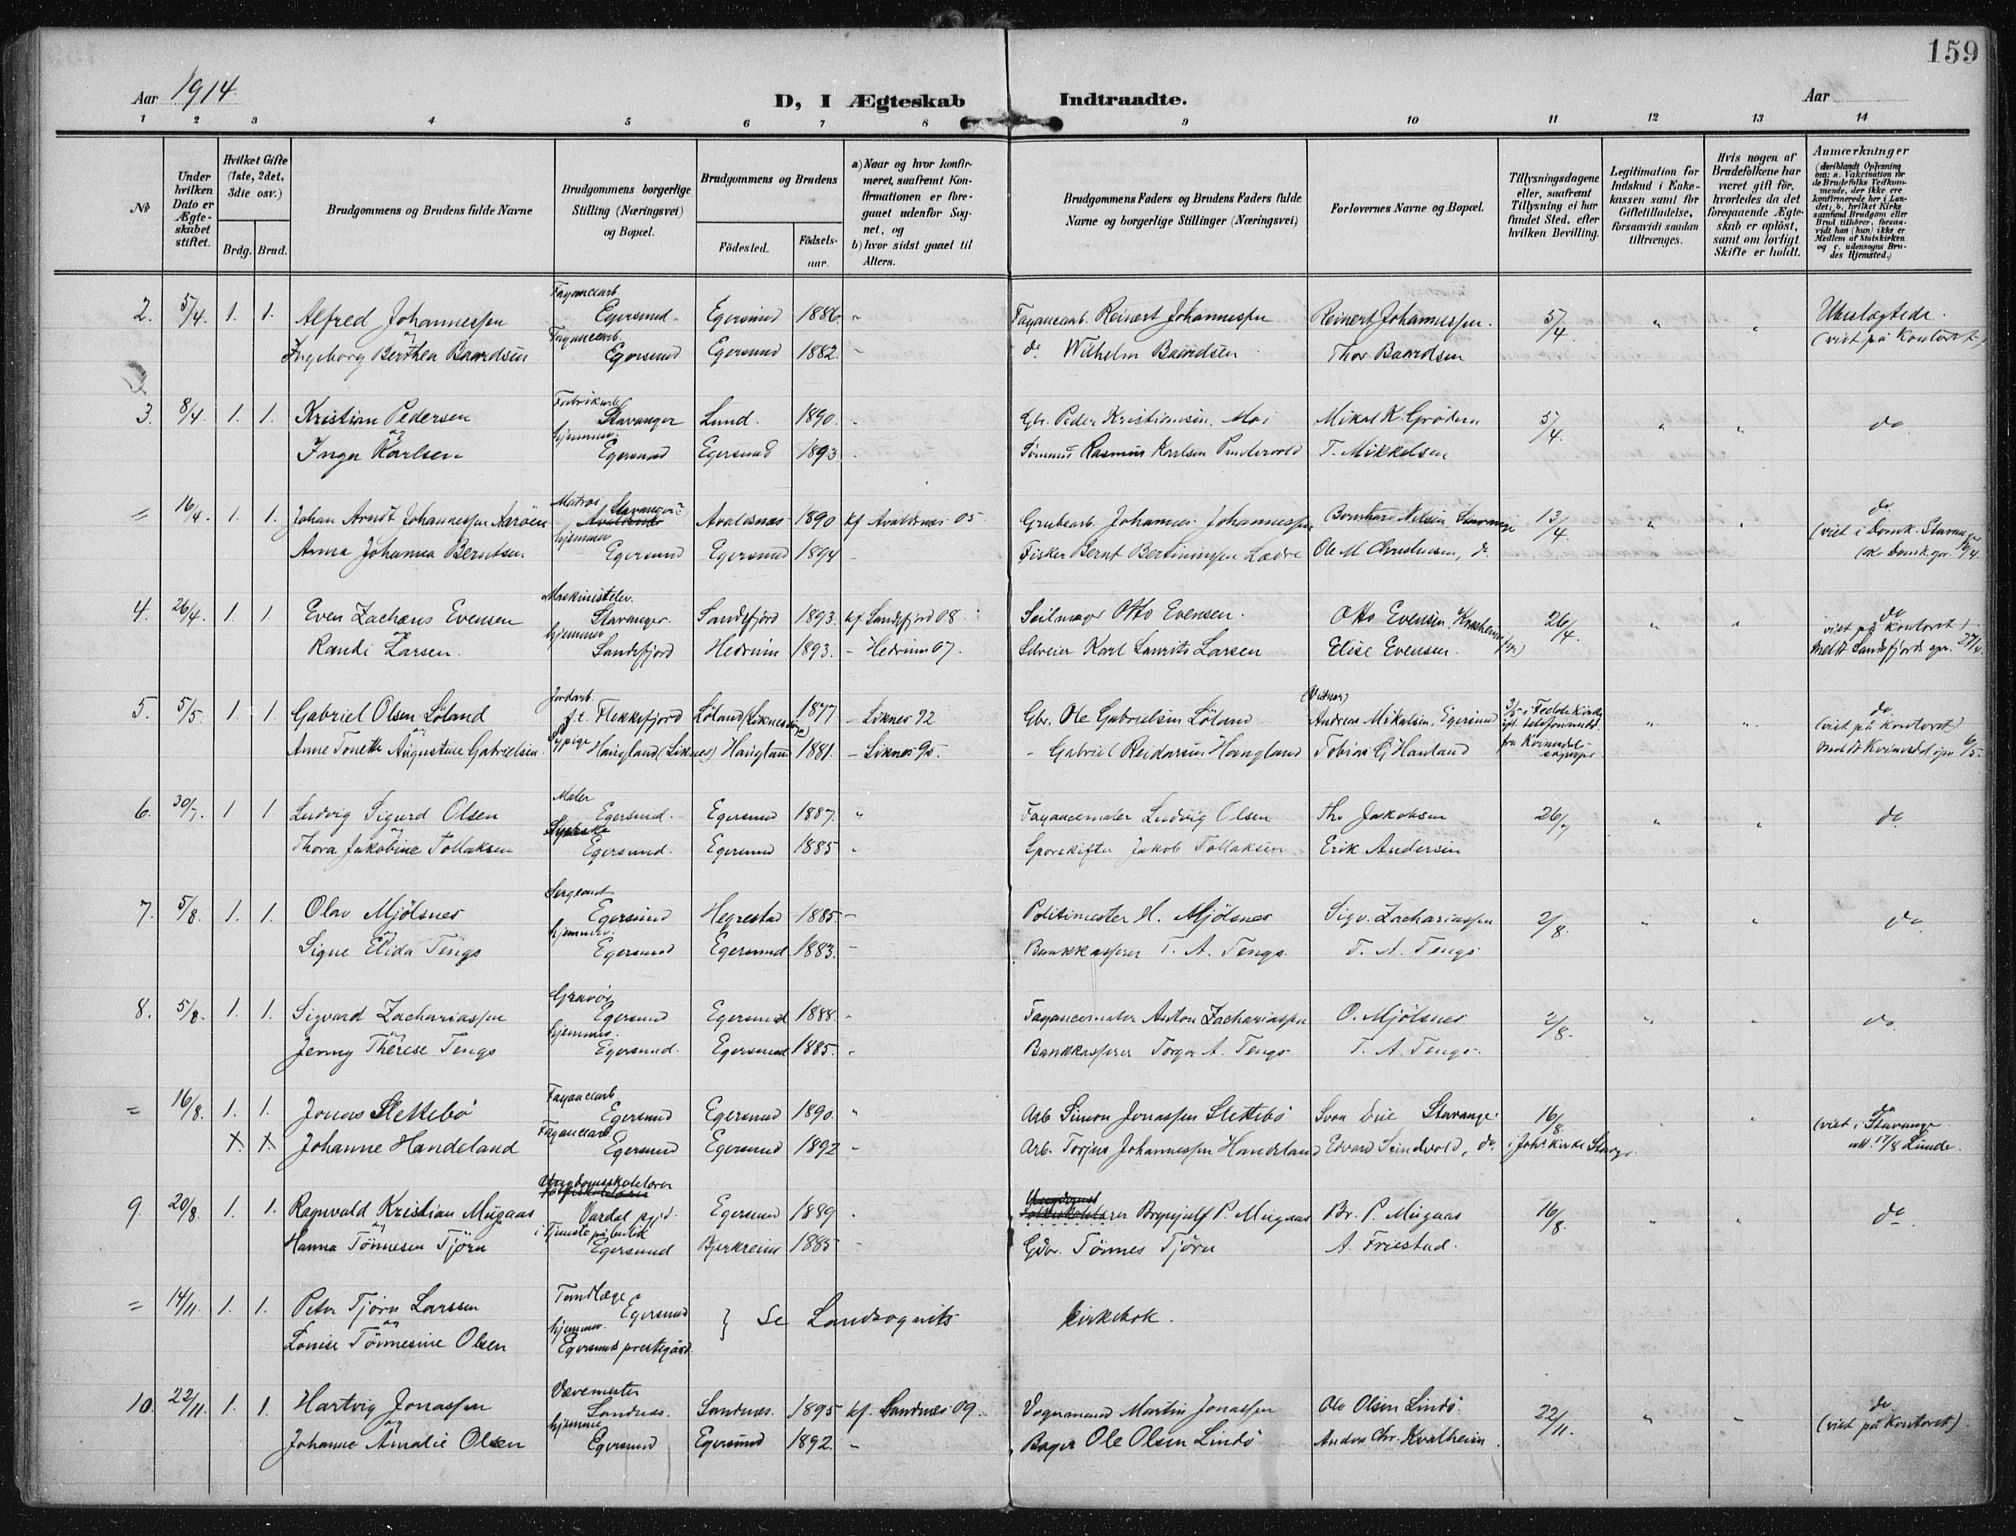 159
Aar 1914.
D, I Ægteskab Indtraadte.
Aar
1 2 3 4 5 6 7 8 9 10 11 12 13 14
No
Under hvilken Dato er Ægteskabet stiftet.
Hvilket Gifte (1ste, 2det, 3die osv.)
Brdg. Brud.
Brudgommens og Brudens fulde Navne
Brudgommens borgerlige Stilling (Næringsvei) og Bopæl.
Brudgommens og Brudens
Fødested. Fødselsaar.
a) Naar og hvor konfirmeret, saafremt Konfirmationen er foregaaet udenfor Sognet, og
b) hvor sidst gaaet til Alters.
Brudgommens Faders og Brudens Faders fulde Navne og borgerlige Stillinger (Næringsvei)
Forlovernes Navne og Bopæl.
Tillysningsdagene eller, saafremt Tillysning ei har fundet Sted, efter hvilken Bevilling.
Legitimation for Indskud i Enkekassen samt for Giftetilladelse, forsaavidt saadan tiltrænges.
Hvis nogen af Brudefolkene har været gift før, hvorledes da det foregaaende Ægteskab er opløst, samt om lovligt Skifte er holdt.
Anmærkninger
(deriblandt Oplysning om: a. Vakcination for de Brudefolks Vedkommende, der ikke ere konfirmerede her i Landet; b. hvilket Kirkesamfund Brudgom eller Brud tilhører, forsaavidt han (hun) ikke er Medlem af Statskirken og c. udensogns Brudes Hjemsted.)
2. 5/4. 1. 1. Alfred Johannessen Fayancearb. Egersund. Egersund 1886 " Fayancearb. Reinert Johannessen Reinert Johannessen. 5/4 " " Ubeslægtede.
og Ingeborg Berthea Baardsen Fayancearb. Egersund Egersund 1882. " do Wilhelm Baardsen Thor Baardsen (viet på kontoret)
3. 8/4 1. 1. Kristian Pedersen Stavanger Lund. 1890. " Gbr. Peder Kristiansen, Moi Mikal K. Grødem 5/4 " " do
og Inga Karlsen hjemmev. Egersund Egersund 1893 " Rasmus Karlsen T. Mikkelsen
= 16/4. 1. 1. Johan Arndt Johannessen Aarøen Matros Stavanger Avaldsnæs 1890 kf Avaldsnæs 05 Grubearb. Johannes Johannessen Bernhard Nilsen, Stavanger 13/4 " " do (viet i Domk. Stavanger
Anna Johanna Berntsen hjemmev. Egersund Egersund 1894 " Fisker Bernt Ole M. Christensen, do. 16/4
4. 26/4 1. 1 Even Zachæus Evensen Maskinistelev. Stavanger. Sandefjord 1893. kf. Sandefjord 08 Seilmager Otto Evensen. Otto Evensen 26/4. " " do viet på kontoret
og Randi Larsen. hjemmev. Sandefjord Hedrum 1893. - Hedrum 07. Karl Laurits Larsen Elise Evensen. Meldt Sandefjords spr. 27/4
5. 5/5 1. 1 Gabriel Olsen Löland Jordarb. p.t. Flekkefjord Löland (Liknes) 1877 - Liknes 92 Gbr. Ole Gabrielsen Löland Andreas Mikalsen, Egersund 3/5 i Fedde Kirke do (viet på kontoret)
og Anne Tonette Augustine Gabrielsen Sypige Haugland (Liknes) Haugland 1881. - Liknes 95. - Gabriel Reidarsen Haugland Tobias G. Hauland 6/5.
6. 30/7. 1 1 Ludvig Sigurd Olsen Maler Egersund. Egersund 1887. " Fayancemaler Ludvig Olsen Th. Jakobsen 26/7 " " do
og Thora Jakobine Tollaksen Egersund. Egersund 1885 " Sporskifter Jakob Tollaksen Erik Andersen
7. 5/8. 1. 1. Olav Mjölsnes Sergeant Egersund Hegrestad 1885 " Politimester H. Mjölsnes Sigv. Zachariassen 2/8. " " do
og Signe Elida Tengs hjemmev. Egersund Egersund 1883. " Bankkasserer T. A. Tengs. T. A. Tengs
8. 5/8. 1. 1. Sigvard Zachariassen Gravör Egersund Egersund 1888. " Fayancemaler Anton Zachariassen O. Mjölsnes 2/8. " " do
og Jenny Thérese Tengs hjemmev. Egersund. Egersund 1885. " Bankkasserer Torger A. Tengs T. A. Tengs.
= 16/8. 1. 1. Jonas Slettebö Fayancearb Egersund Egersund 1890. " Arb Simon Jonassen Slettebö Stavanger 16/8 " do (viet i Stavanger
X. X. Johanne Handeland Fayancearb Egersund Egersund 1892 " Arb. Torjus Johannessen Handeland Edvard Sundvold, do. i Joh's kirke Stavgr. 17/8 Lunde.
9. 20/8. 1. 1. Ragnvald Kristian Mugaas Ungdomsskolelærer Vardal Egersund 1889 " Brynjulf P. Mugaas Br. P. Mugaas 16/8. " " do
og Hanna Tönnesen Tjörn i Tjeneste Egersund Bjerkreim 1885 " Gbr. Tönnes Tjörn A. Friestad.
= 14/11. 1. 1. Peter Tjörn Larssen Tandlæge Egersund } Se Landsognets kirkebok.
og Lovise Tönnesine Olsen hjemmev. Egersunds prestegård.
10. 22/11. 1. 1. Hartvig Jonassen Vævemester Sandnæs. Sandnæs. 1895 kf. Sandnæs 09. Vognmand Martin Jonassen Ole Olsen Lindö. 22/11. " " do (viet på kontoret).
og Johanne Amalie Olsen hjemme Egersund Egersund 1892. " Bager Ole Olsen Lindö Anders Chr. Kvalheim.